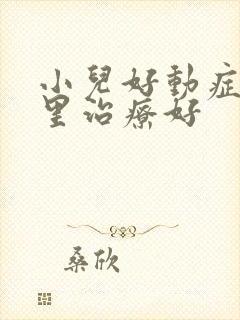 小兒好動症
里治療好
桑欣